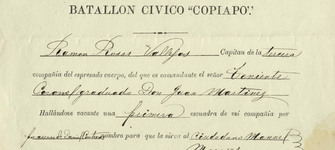 BATALLON CIVICO "COPIAPO".
Ramon Rosas Vallejos Capitan de la tercera
compañia del espresado cuerpo, del que es comandante el señor Teniente
Coronel graduado Don Juan Martinez
Hallándose vacante una primera escuadra de mi compañia por
nombro para que la sirva al Ciudadano Manuel